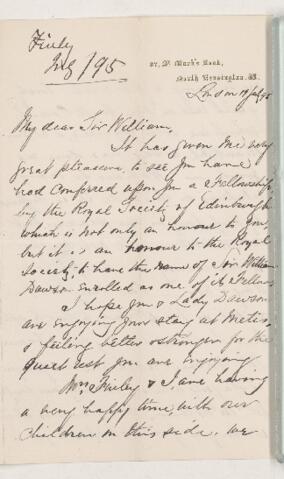 Finly
/95
27, St Mark's Road,
North Kensington. W.
London 19 July 95
My dear Sir William,
It has given me very
great pleasure to see you have
had conferred upon you a Fellowship
by the Royal Society of Edinburgh
which is not only an honour to you,
but it is an honour to the Royal
Society to have the name of Sir William
Dawson enrolled as one of it Fellows
I hope you & Lady Dawson
are enjoying your stay at Metis
& feeling better & stronger for the
quiet rest you are enjoying
Mrs Finley & I are having
a very happy time, with our
children on this side. We